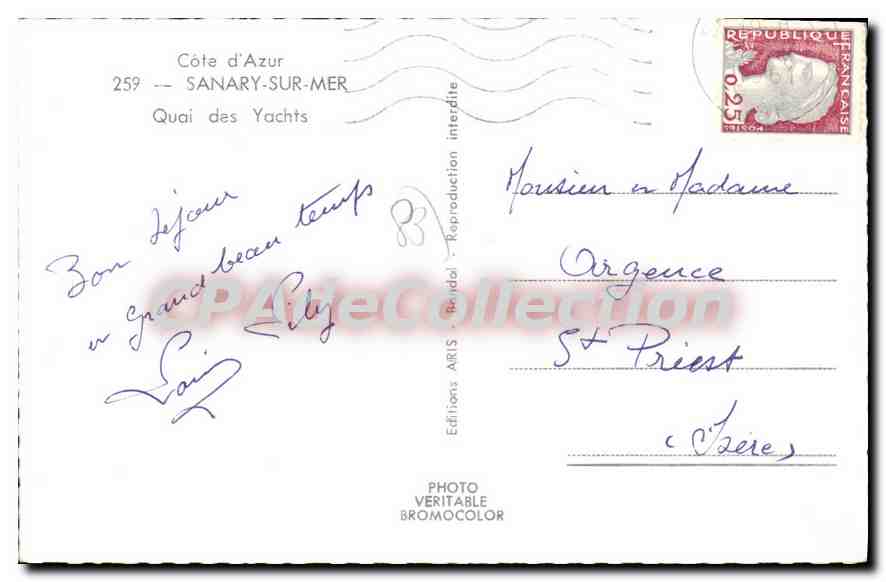 Côte d'Azur
259 — SANARY-SUR-MER
Quai des Yachts
Bon séjour
et grand beau temps
Lily
Louis
83
Editions ARIS - Bandol - Reproduction interdite
REPUBLIQUE FRANÇAISE
0,25
POSTES
Monsieur et Madame
Argence
St Priest
(Isère)
PHOTO
VERITABLE
BROMOCOLOR
CPAdeCollection